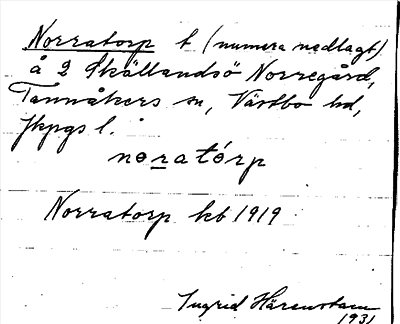 Norratorp t (numera nedlagt)
å 2 Skällandsö Norregård,
Tannåkers sn, Västbo hd,
Jkpgs l.
noratórp
Norratorp kb 1919
Ingrid Härenstam
1931